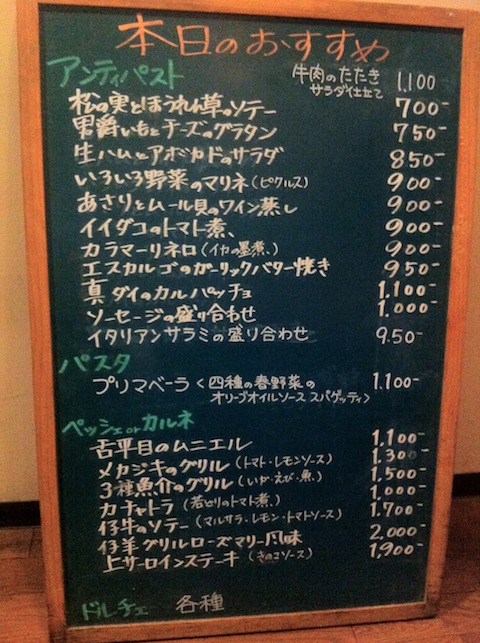 本日のおすすめ
アンティパスト 牛肉のたたき サラダ仕立て 1,100
松の実とほうれん草のソテー 700-
男爵いもとチーズのグラタン 750-
生ハムとアボカドのサラダ 850-
いろいろ野菜のマリネ(ピクルス) 900-
あさりとムール貝のワイン蒸し 900-
イイダコのトマト煮、 900-
カラマーリネロ(イカの墨煮、) 900-
エスカルゴのガーリックバター焼き 950-
真ダイのカルパッチョ 1,100-
ソーセージの盛り合わせ 1,000-
イタリアンサラミの盛り合わせ 950-
パスタ
プリマベーラ <四種の春野菜の 1,100-
オリーブオイルソース スパゲッティ>
ペッシェorカルネ
舌平目のムニエル 1,100-
メカジキのグリル(トマト・レモンソース) 1,300-
3種魚介のグリル(いか・えび・魚、) 1,500-
カチャトラ(若どりのトマト煮、) 1,000-
仔牛のソテー(マルサラ・レモン・トマトソース) 1,700-
仔羊グリルローズマリー風味 2,000-
上サーロインステーキ(きのこソース) 1,900-
ドルチェ 各種